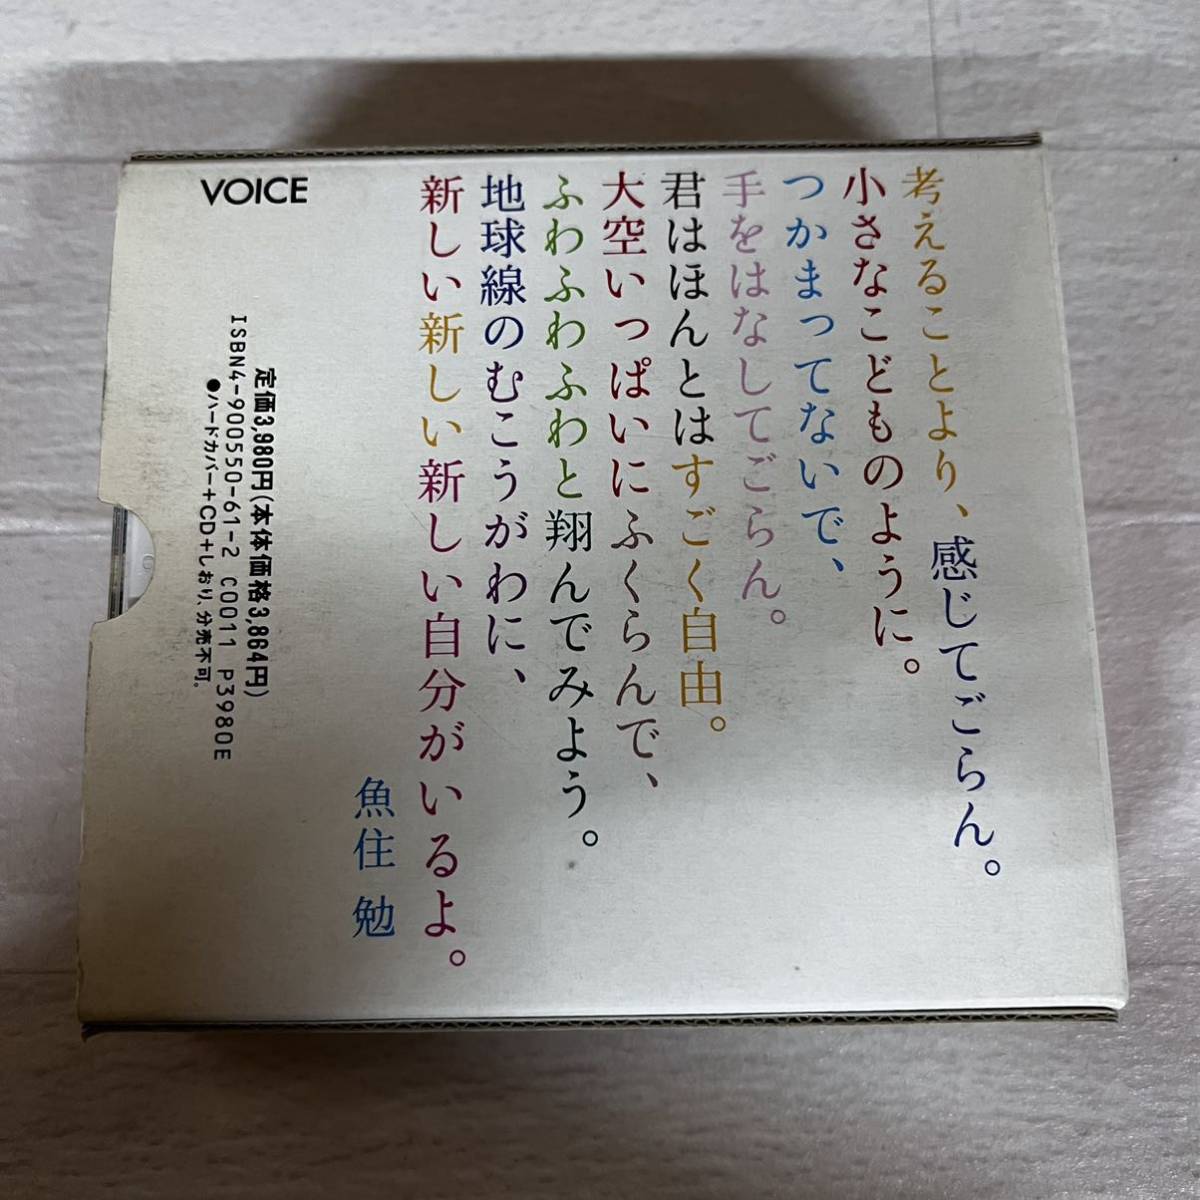 考えることより、感じてごらん。
小さなこどものように。
つかまってないで、
手をはなしてごらん。
君はほんとはすごく自由。
大空いっぱいにふくらんで、
ふわふわふわと翔んでみよう。
地球線のむこうがわに、
新しい新しい新しい自分がいるよ。
魚住 勉
VOICE
定価3,980円(本体価格3,864円)
ISBN4-900550-61-2 C0011 P3980E
●ハードカバー+CD+しおり、分売不可。